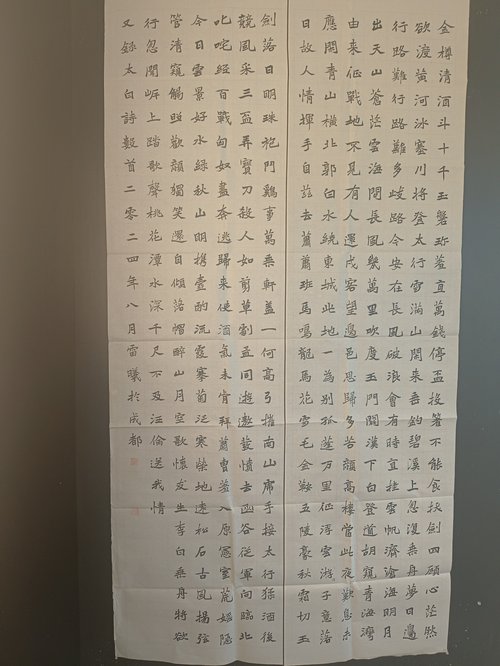 金樽清酒斗十千玉盤珍羞直萬錢停盃投箸不能食拔劍四顧心茫然
欲渡黃河冰塞川將登太行雪滿山閑來垂釣碧溪上忽復乘舟夢日邊
行路難行路難多歧路今安在長風破浪會有時直挂雲帆濟滄海明月
出天山蒼茫雲海間長風幾萬里吹度玉門關漢下白登道胡窺青海灣
由來征戰地不見有人還戍客望邊邑思歸多苦顏高樓當此夜歎息未
應閑青山橫北郭白水繞東城此地一為別孤蓬萬里征浮雲游子意落
日故人情揮手自茲去蕭蕭班馬鳴龍馬花雪毛金鞍五陵豪秋霜切玉
劍落日明珠袍鬥雞事萬乘軒蓋一何高弓摧南山虎手接太行猱酒後
競風采三盃弄寶刀殺人如剪草劇孟同遊遨發憤去函谷從軍向臨
叱咤經百戰匈奴盡奔逃歸來使酒氣未肯拜蕭曹羞入原憲室荒隱
今日雲景好水綠秋山明攜壺酌流霞搴菊泛寒榮地遠松石古風揚弦
管清窺觴照歡顏獨笑還自傾落帽醉山月空歌懷友生李白乘舟將欲
行忽聞岸上踏歌聲桃花潭水深千尺不及汪倫送我情
又錄太白詩數首二零二四年八月雷曦於成都